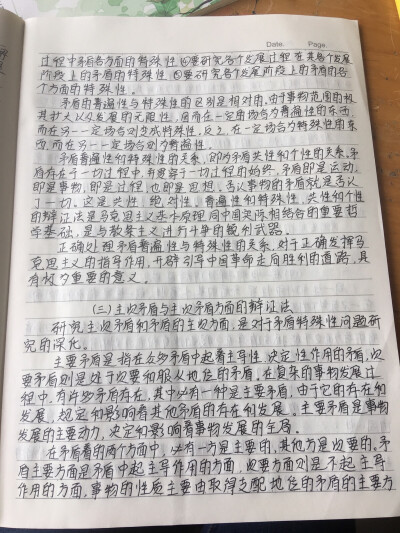 Date.  Page.
过程中矛盾各方面的特殊性④要研究各个发展过程在其各个发展
阶段上的矛盾的特殊性⑤要研究各个发展阶段上的矛盾的各
个方面的特殊性。
矛盾的普遍性与特殊性的区别是相对的,由于事物范围的极
其扩大以及发展的无限性,因而在一定场合为普遍性的东西,
而在另一一定场合则变成特殊性,反之,在一定场合为特殊性的东
西,而在另一一定场合则为普遍性。
矛盾普遍性和特殊性的关系,即为矛盾共性和个性的关系。矛
盾存在于一切过程中,并贯穿于一切过程的始终,矛盾即是运动,
即是事物,即是过程,也即是思想。否认事物的矛盾就是否认
了一切。这是共性,绝对性。普遍性和特殊性,共性和个性
的辩证法是马克思主义基本原理同中国实际相结合的重要哲
学基础,是与教条主义进行斗争的锐利武器。
正确处理矛盾普遍性与特殊性的关系,对于正确发挥马
克思主义的指导作用,开辟引导中国革命走向胜利的道路,具
有极为重要的意义。
(三)主次矛盾与主次矛盾方面的辩证法
研究主次矛盾和矛盾的主次方面,是对于矛盾特殊性问题研
究的深化。
主要矛盾是指在众多矛盾中起着主导性、决定性作用的矛盾,次
要矛盾则是处于次要和服从地位的矛盾。在复杂的事物发展过
程中,有许多矛盾存在,其中必有一种是主要矛盾,由于它的存在和
发展,规定和影响着其他矛盾的存在和发展。主要矛盾是事物
发展的主要动力,决定和影响着事物发展的全局。
在矛盾着的两个方面中,必有一方是主要的,其他方是次要的。矛
盾主要方面是矛盾中起主导作用的方面,次要方面则是不起主导
作用的方面,事物的性质主要由取得支配地位的矛盾的主要方